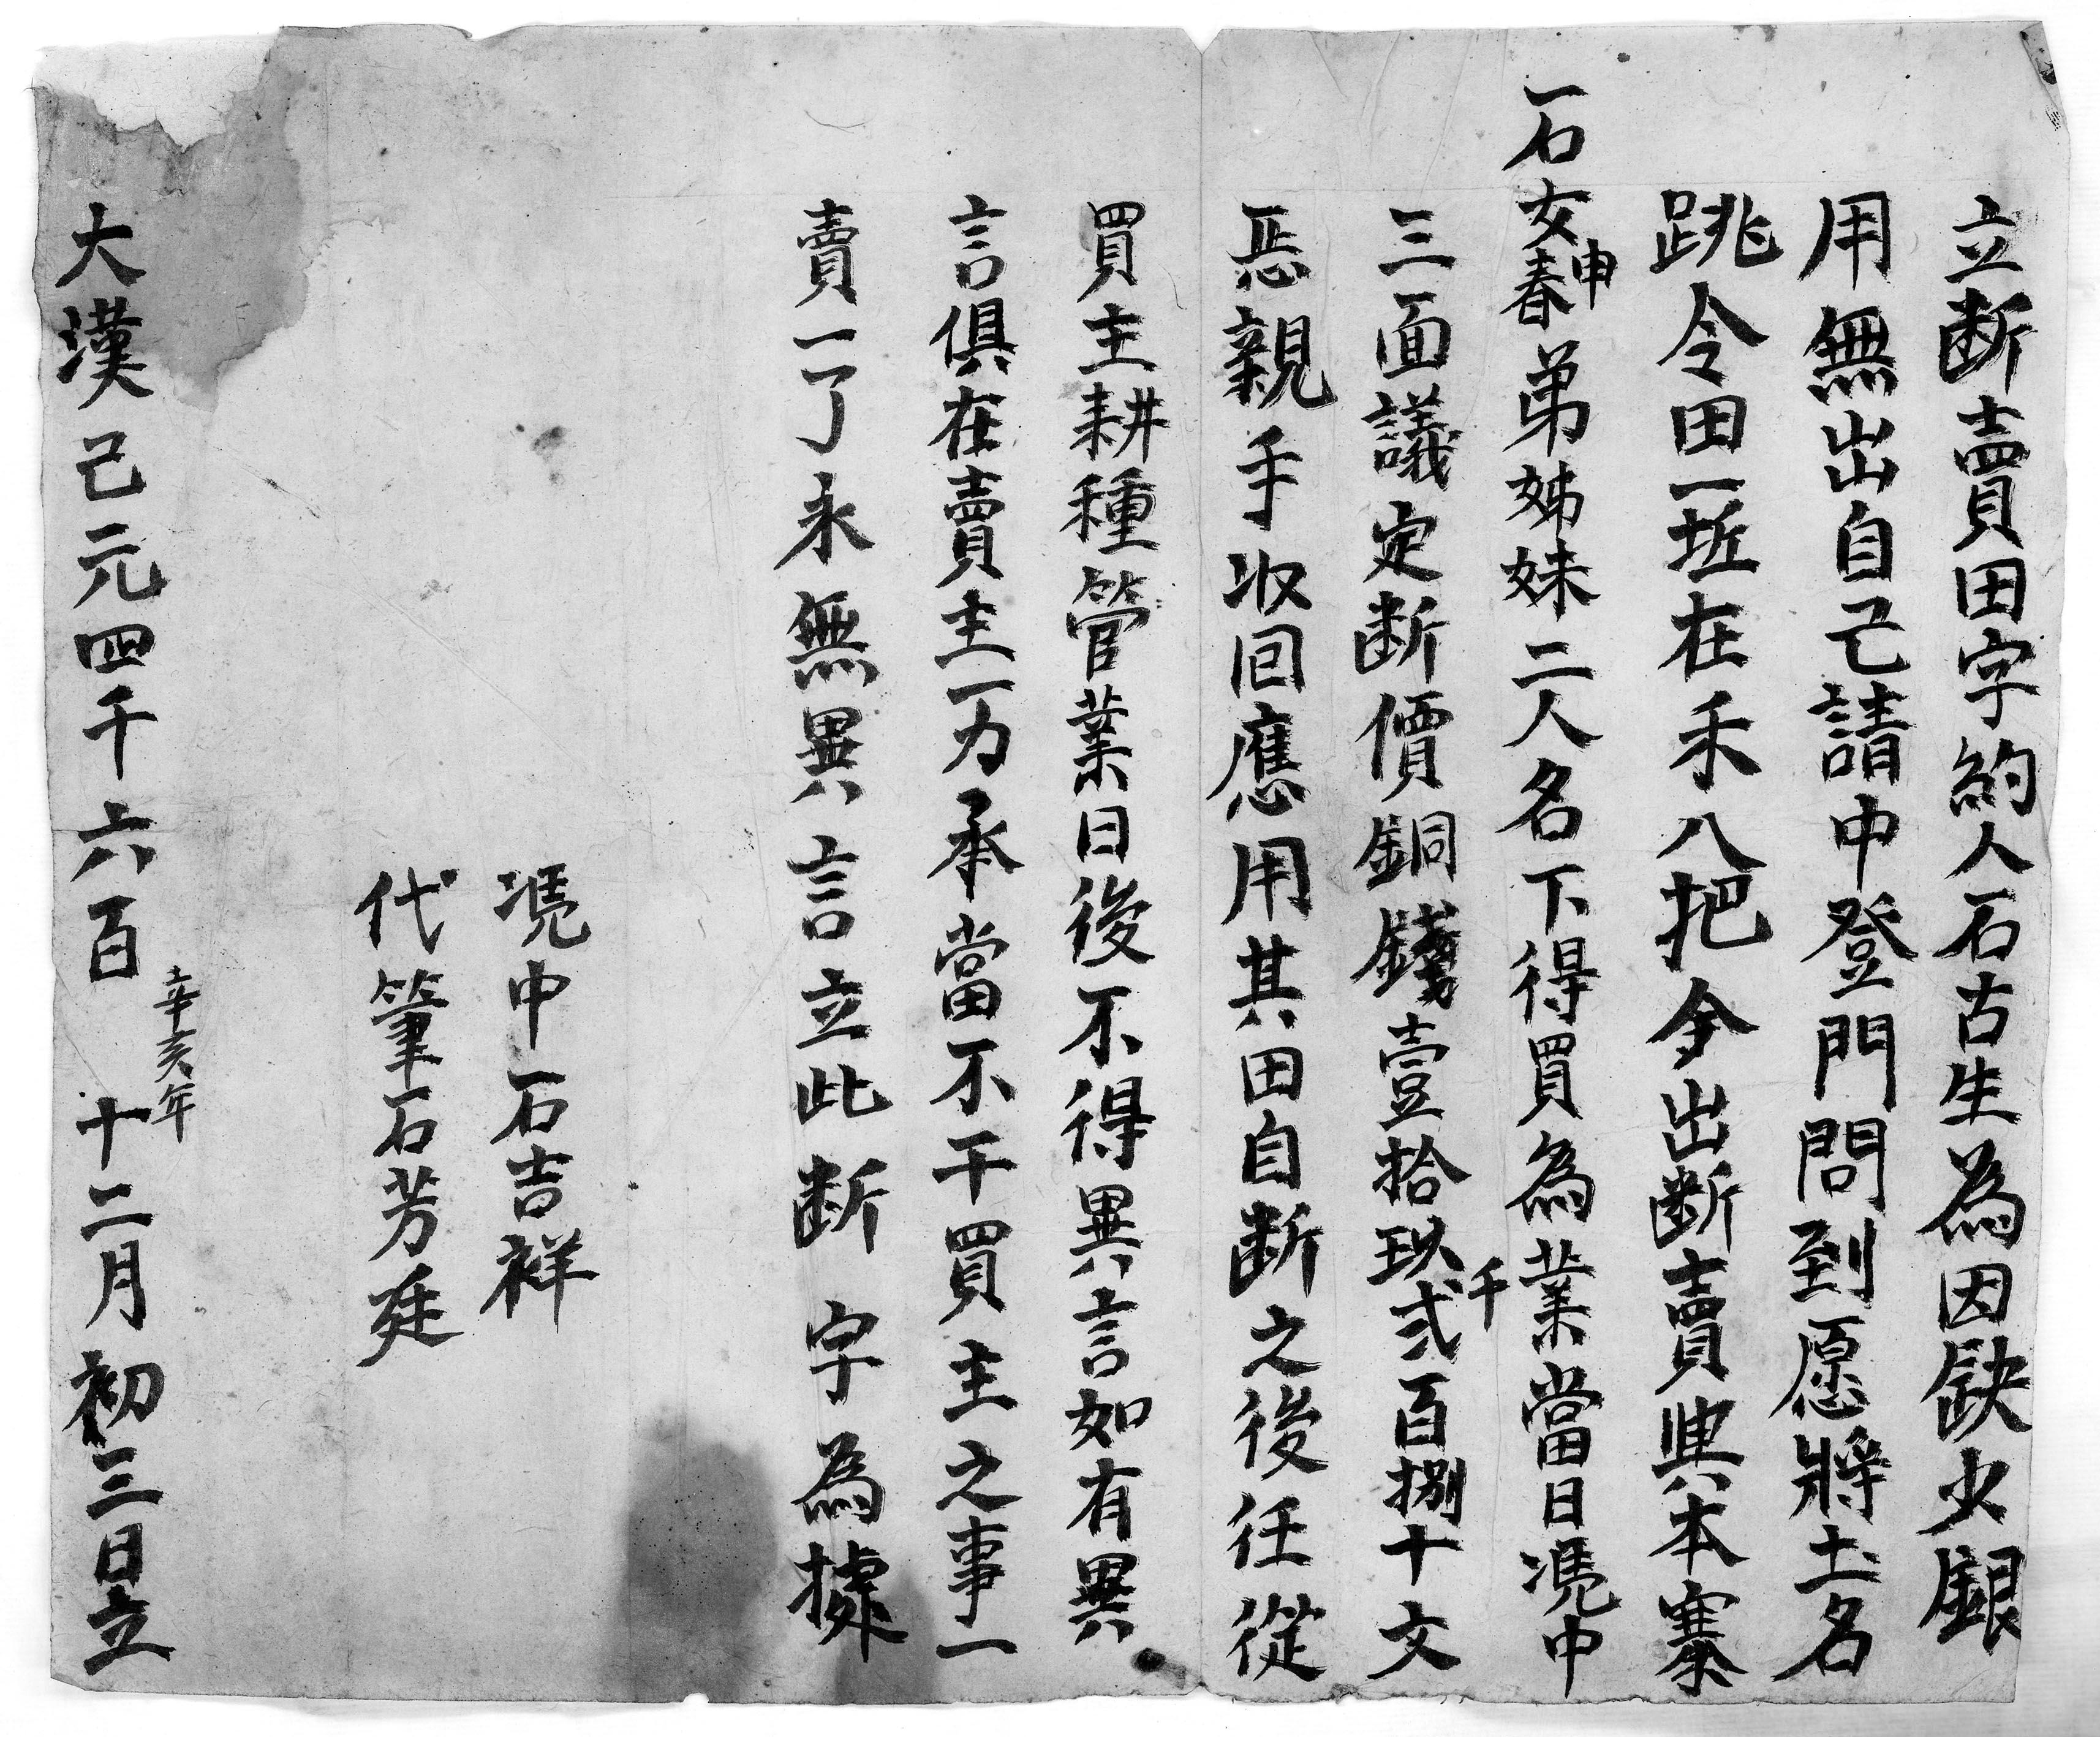 立断賣田字約人石古生為因缺少銀
用無出自己請中登門問到愿將土名
跳令田一坵在禾八把今出断賣與本寨
石女申春弟姊妹二人名下得買為業當日凴中
三面議定断價銅錢壹拾玖千弍百捌十文
恁親手收回應用其田自断之後任從
買主耕種管業日後不得異言如有異
言俱在賣主一力承當不干買主之事一
賣一了永無異言立此断字為據
凴中石吉祥
代筆石芳廷
大漢己元四千六百辛亥年十二月初三日立